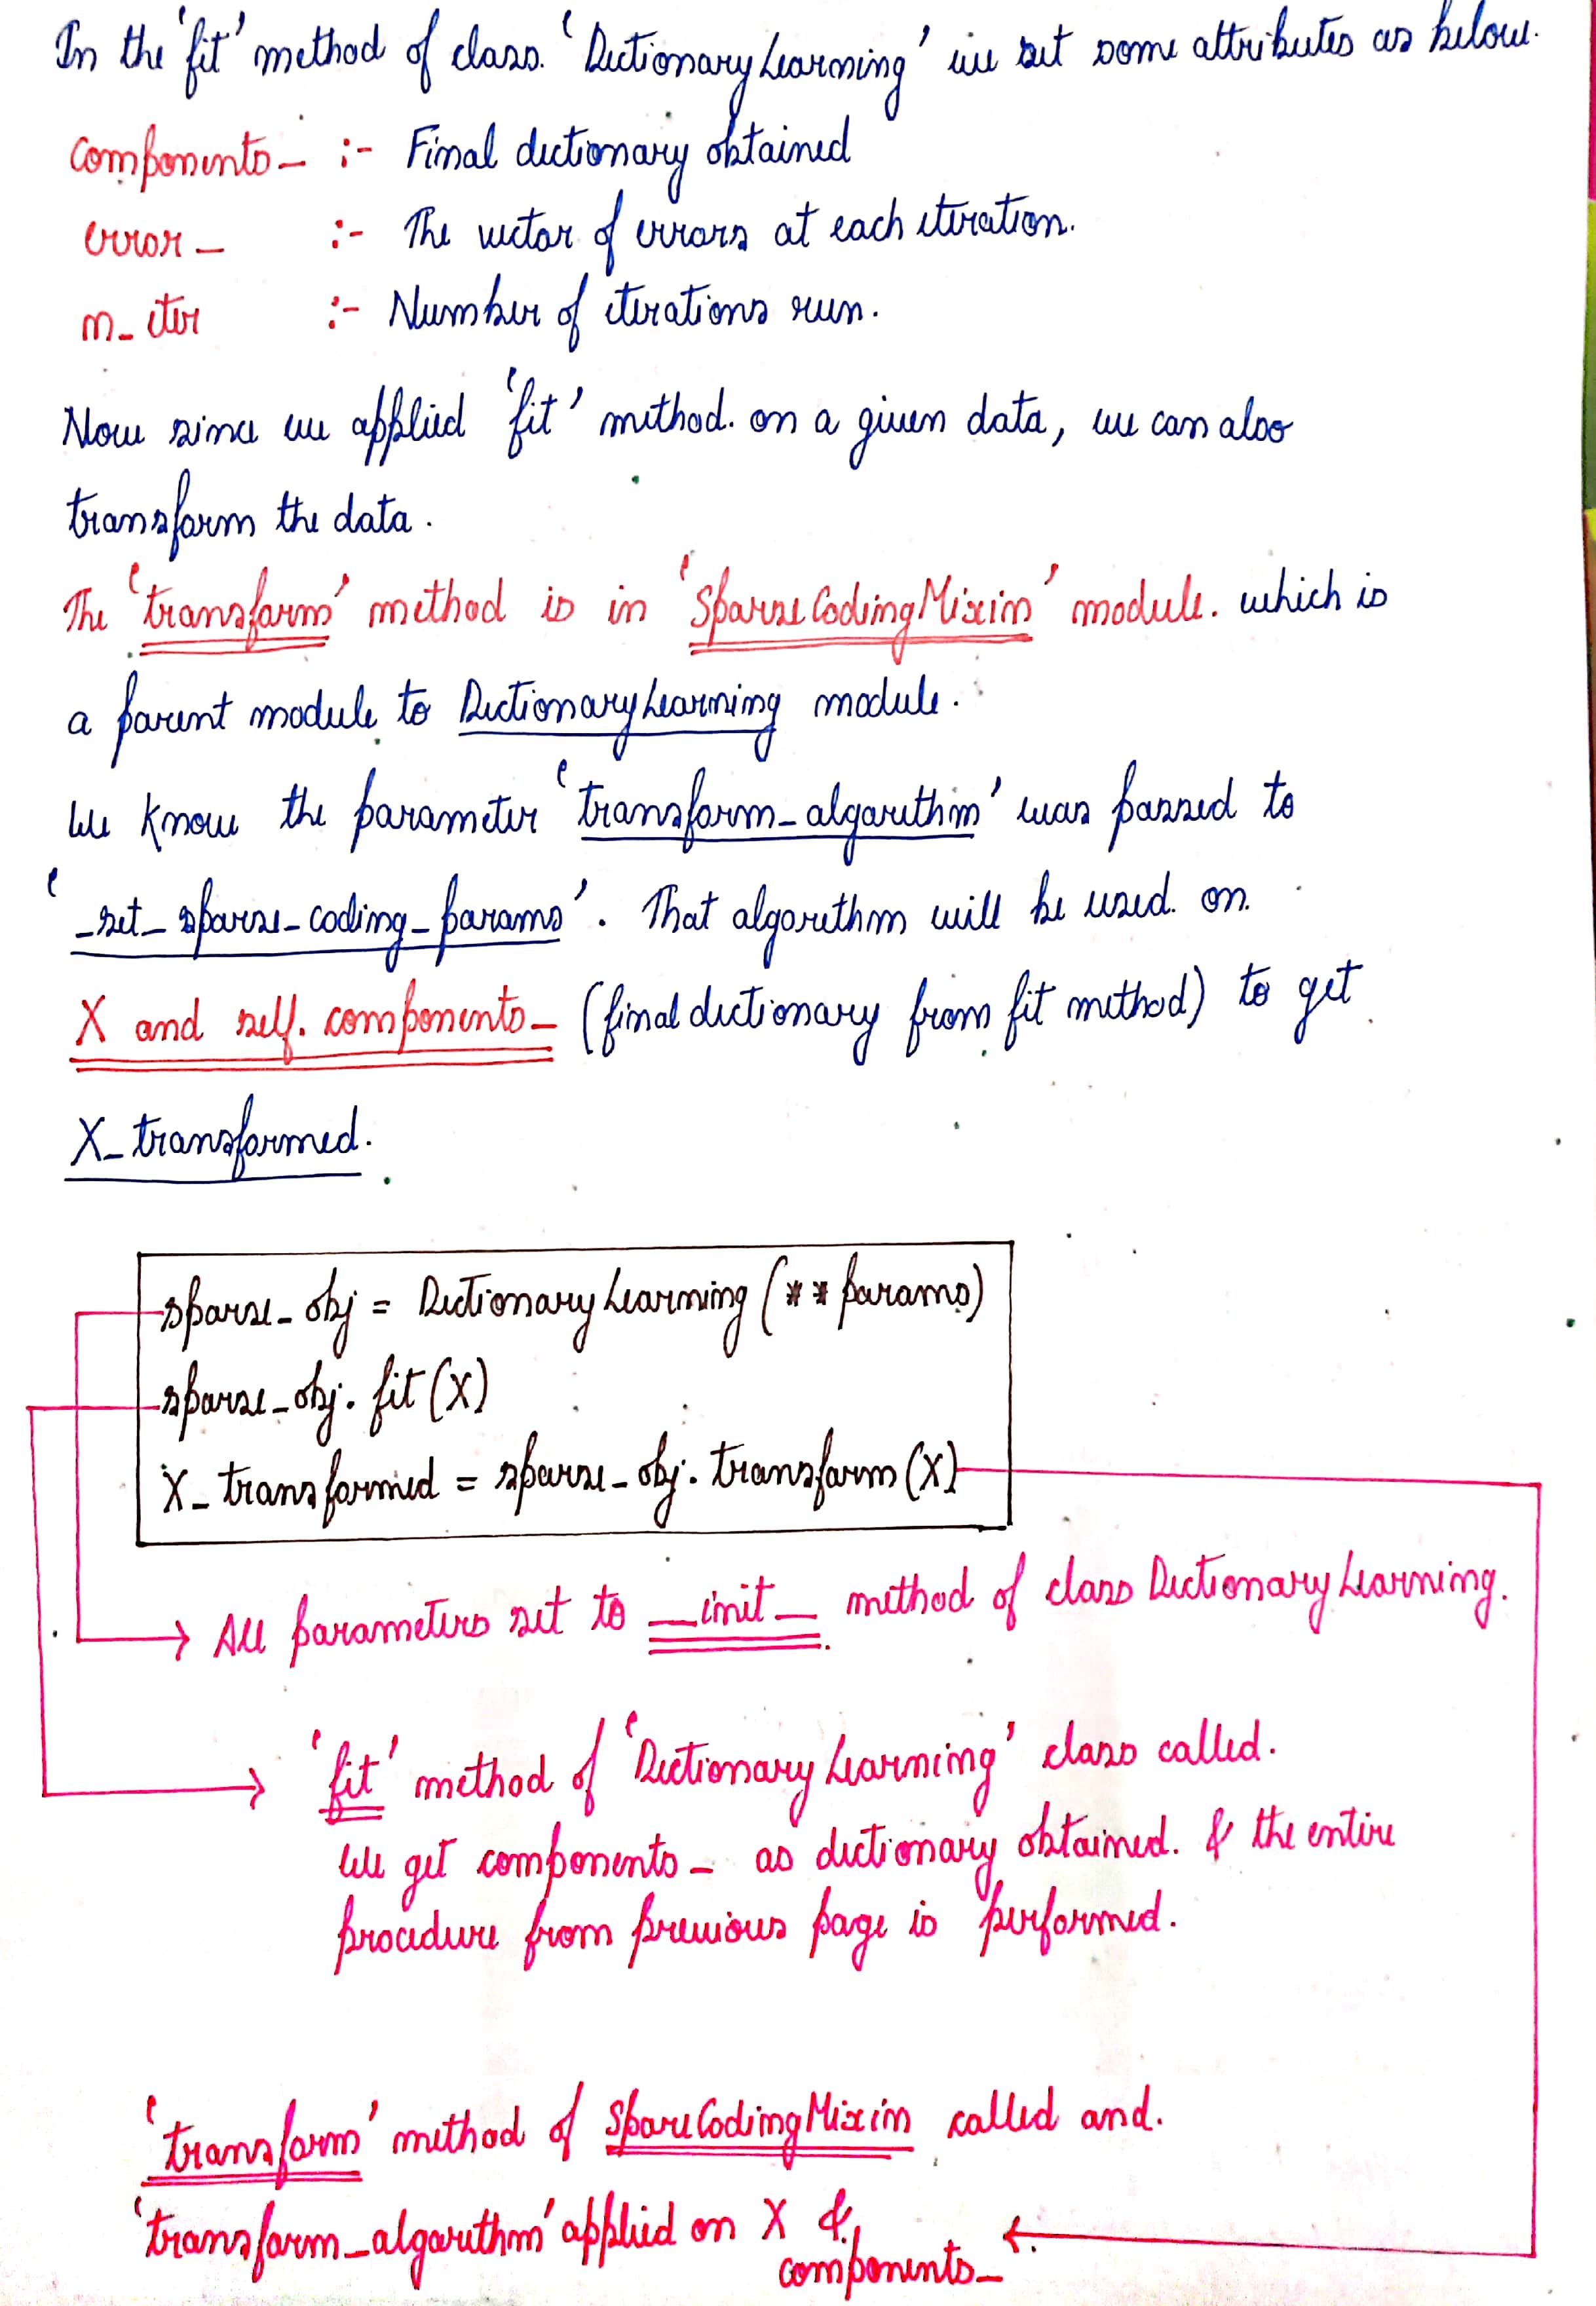 In the 'fit' method of class. 'DictionaryLearning' we set some attributes as below.
components_ :- Final dictionary obtained
error_ :- The vector of errors at each iteration.
n_iter :- Number of iterations run.
Now since we applied 'fit' method. on a given data, we can also
transform the data.
The 'transform' method is in 'SparseCodingMixin' module. which is
a parent module to DictionaryLearning module.
We know the parameter 'transform_algorithm' was passed to
'_set_sparse_coding_params'. That algorithm will be used on.
X and self.components_ (final dictionary from fit method) to get
X_transformed.
sparse_obj = DictionaryLearning(**params)
sparse_obj.fit(X)
X_transformed = sparse_obj.transform(X)
All parameters set to __init__ method of class DictionaryLearning.
'fit' method of 'DictionaryLearning' class called.
We get components_ as dictionary obtained. & the entire
procedure from previous page is performed.
'transform' method of SpareCodingMixin called and.
'transform_algorithm' applied on X &
components_